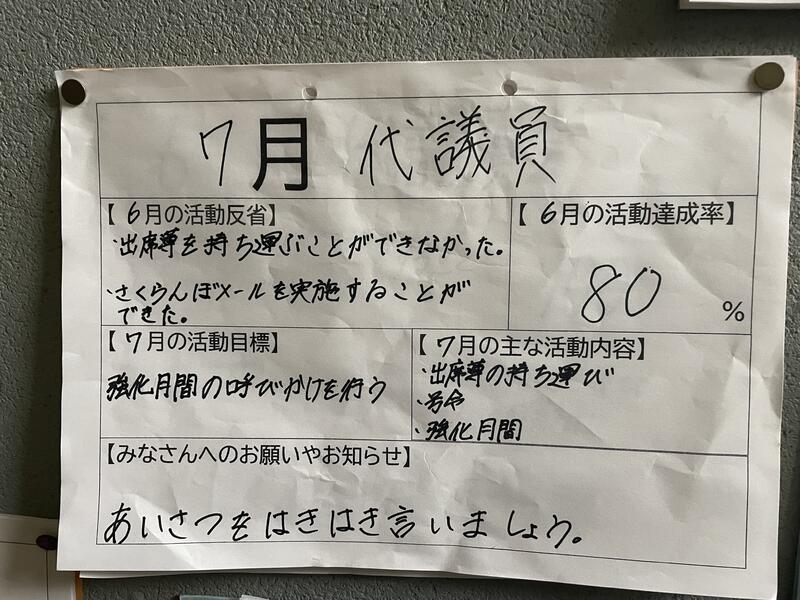 7月 代議員
【 6月の活動反省】
・出席簿を持ち運ぶことができなかった。
・さくらんぼメールを実施することが
できた。
【 6月の活動達成率】
80 %
【 7月の活動目標】
強化月間の呼びかけを行う
【 7月の主な活動内容】
・出席簿の持ち運び
・号令
・強化月間
【みなさんへのお願いやお知らせ】
あいさつをはきはき言いましょう。